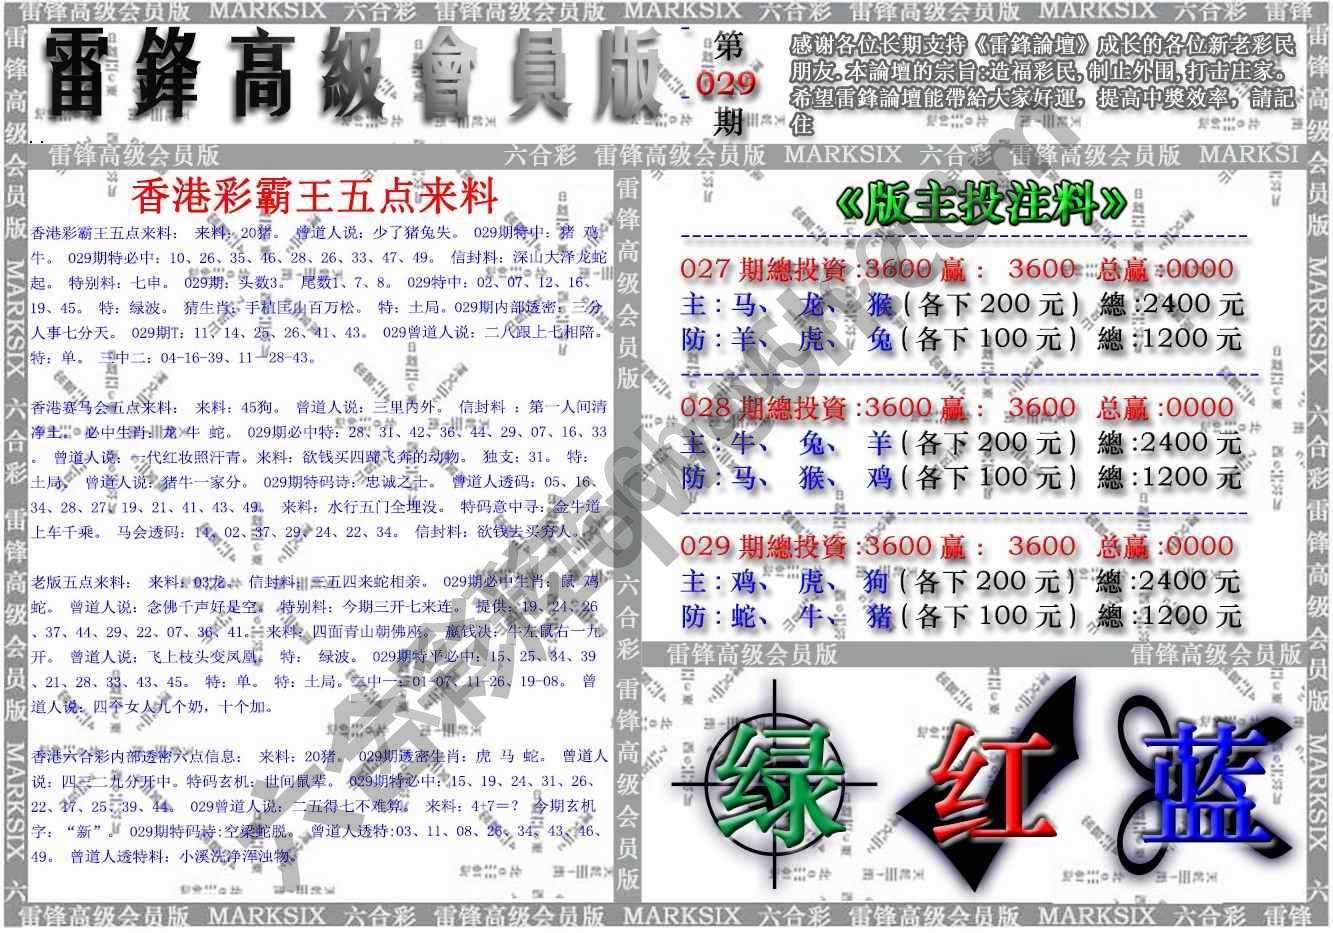 雷锋高级会员版 MARKSIX 六合彩 雷锋高级会员版 MARKSIX 六合彩 雷锋高级会员版 MARKSIX 六合彩 雷锋
雷鋒高級會員版
第
029
期
感谢各位长期支持《雷鋒論壇》成长的各位新老彩民
朋友.本論壇的宗旨:造福彩民,制止外围,打击庄家。
希望雷鋒論壇能帶給大家好運，提高中獎效率，請記
住
雷锋高级会员版 六合彩 雷锋高级会员版 MARKSIX 六合彩 雷锋高级会员版 MARKSI
香港彩霸王五点来料
香港彩霸王五点来料： 来料：20猪。 曾道人说：少了猪兔失。 029期特中：猪 鸡
牛。 029期特必中：10、26、35、46、28、26、33、47、49。 信封料：深山大泽龙蛇
起。 特别料：七申。 029期：头数3。 尾数1、7、8。 029特中：02、07、12、16、
19、45。 特：绿波。 猪生肖：手植匡山百万松。 特：土局。029期内部透密：三分
人事七分天。 029期T：11、14、25、26、41、43。 029曾道人说：二八跟上七相陪。
特：单。 三中二：04-16-39、11－28-43。
香港赛马会五点来料： 来料：45狗。 曾道人说：三里内外。 信封料 ：第一人间清
净土。 必中生肖：龙 牛 蛇。 029期必中特：28、31、42、36、44、29、07、16、33
。 曾道人说：一代红妆照汗青。来料：欲钱买四蹄飞奔的动物。 独支：31。 特：
土局。 曾道人说：猪牛一家分。 029期特码诗：忠诚之士。 曾道人透码：05、16、
34、28、27、19、21、41、43、49。 来料：水行五门全埋没。 特码意中寻：金牛道
上车千乘。 马会透码：14、02、37、29、24、22、34。 信封料：欲钱去买穷人。
老版五点来料： 来料：03龙。 信封料：二五四来蛇相亲。 029期必中生肖：鼠 鸡
蛇。 曾道人说：念佛千声好是空。 特别料：今期三开七来连。 提供：19、24、26
、37、44、29、22、07、36、41。 来料：四面青山朝佛座。 赢钱决：牛左鼠右一九
开。 曾道人说：飞上枝头变凤凰。 特： 绿波。 029期特平必中：15、25、34、39
、21、28、33、43、45。 特：单。 特：土局。二中一：01-07、11-26、19-08。 曾
道人说：四个女人几个奶，十个加。
香港六合彩内部透密六点信息： 来料：20猪。 029期透密生肖：虎 马 蛇。 曾道人
说：四三二九分开中。特码玄机：世间鼠辈。 029期特必中：15、19、24、31、26、
22、17、25、39、44。 029曾道人说：二五得七不难算。 来料：4+7=？ 今期玄机
字：“新”。 029期特码诗:空梁蛇脱。 曾道人透特:03、11、08、26、34、43、46、
49。 曾道人透特料：小溪洗净浑浊物。
《版主投注料》
027期總投資:3600赢： 3600 总赢:0000
主:马、 龙、 猴(各下200元) 總:2400元
防:羊、 虎、 兔(各下100元) 總:1200元
028期總投資:3600赢： 3600 总赢:0000
主:牛、 兔、 羊(各下200元) 總:2400元
防:马、 猴、 鸡(各下100元) 總:1200元
029期總投資:3600赢： 3600 总赢:0000
主:鸡、 虎、 狗(各下200元) 總:2400元
防:蛇、 牛、 猪(各下100元) 總:1200元
雷锋高级会员版 雷锋高级会员版
绿 红 蓝
雷锋高级会员版 MARKSIX 六合彩 雷锋高级会员版 MARKSIX 六合彩 雷锋高级会员版 MARKSIX 六合彩 雷锋